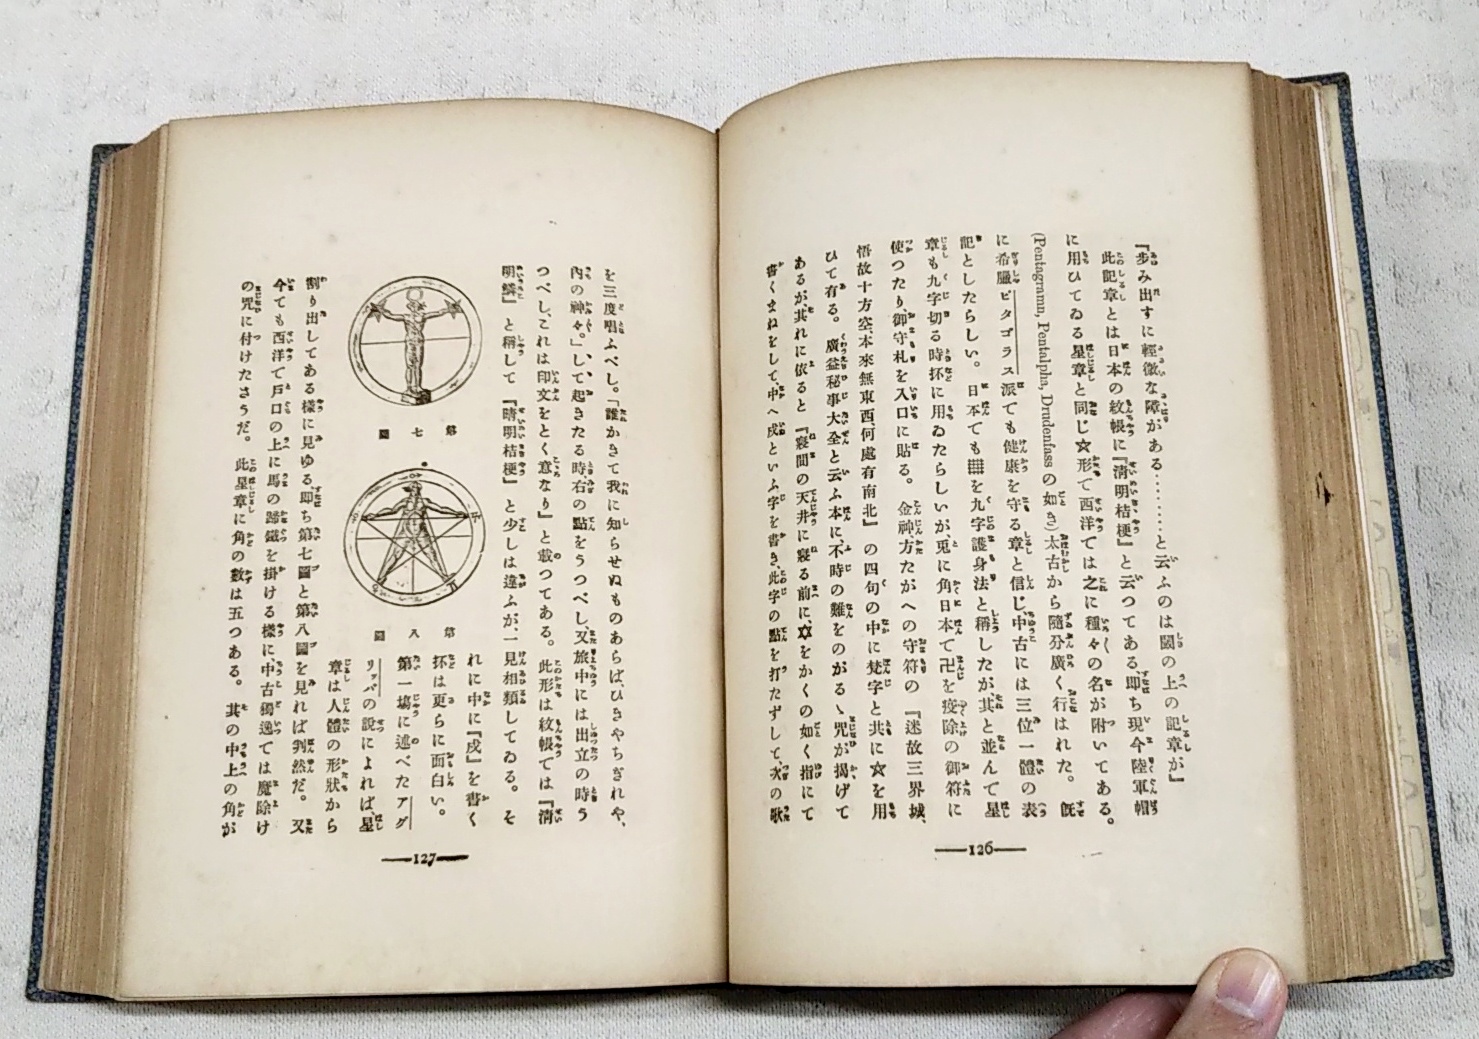 『歩み出すに輕微な障がある………と云ふのは閾の上の記章が』
此記章とは日本の紋帳に『淸明桔梗』と云つてある、即ち現今陸軍帽
に用ひてゐる星章と同じ☆形で西洋では之に種々の名が附いてある。
(Pentagramn, Pentalpha, Drudenfass の如き)太古から隨分廣く行はれた。既
に希臘ピタゴラス派でも健康を守る章と信じ、中古には三位一體の表
記としたらしい。日本でも𝍖を九字護身法と稱したが、其と並んで星
章も九字切る時抔に用ゐたらしいが、兎に角日本で卍を疫除の御符に
使つたり、御守札を入口に貼る。金神、方たがへの守符の『迷故三界城、
悟故十方空、本來無東西、何處有南北』の四句の中に梵字と共に☆を用
ひて有る。廣益秘事大全と云ふ本に、不時の難をのがるゝ咒が揭げて
あるが、其れに依ると『寢間の天井に寢る前に、✡をかくの如く指にて
書くまねをして、中へ戍といふ字を書き、此字の點を打たずして、次の歌
—126—
を三度唱ふべし。「誰かきて我に知らせぬものあらば、ひきやちぎれや、
內の神々。」して起きたる時、右の點をうつべし、又旅中には出立の時う
つべし、これは印文をとく意なり』と載つてある。此形は紋帳では『淸
明鱗』と稱して『晴明桔梗』と少しは違ふが、一見相類してゐる。そ
れに中に『戍』を書く
抔は更らに面白い。
第一場に述べたアグ
リッパの說によれば星
章は人體の形狀から
第七圖
第八圖
割り出してある樣に見ゆる、即ち第七圖と第八圖を見れば判然だ。又
今でも西洋で戶口の上に馬の蹄鐵を掛ける樣に、中古獨逸では魔除け
の咒に付けたさうだ。此星章に角の數は五つある。其の中上の角が
—127—